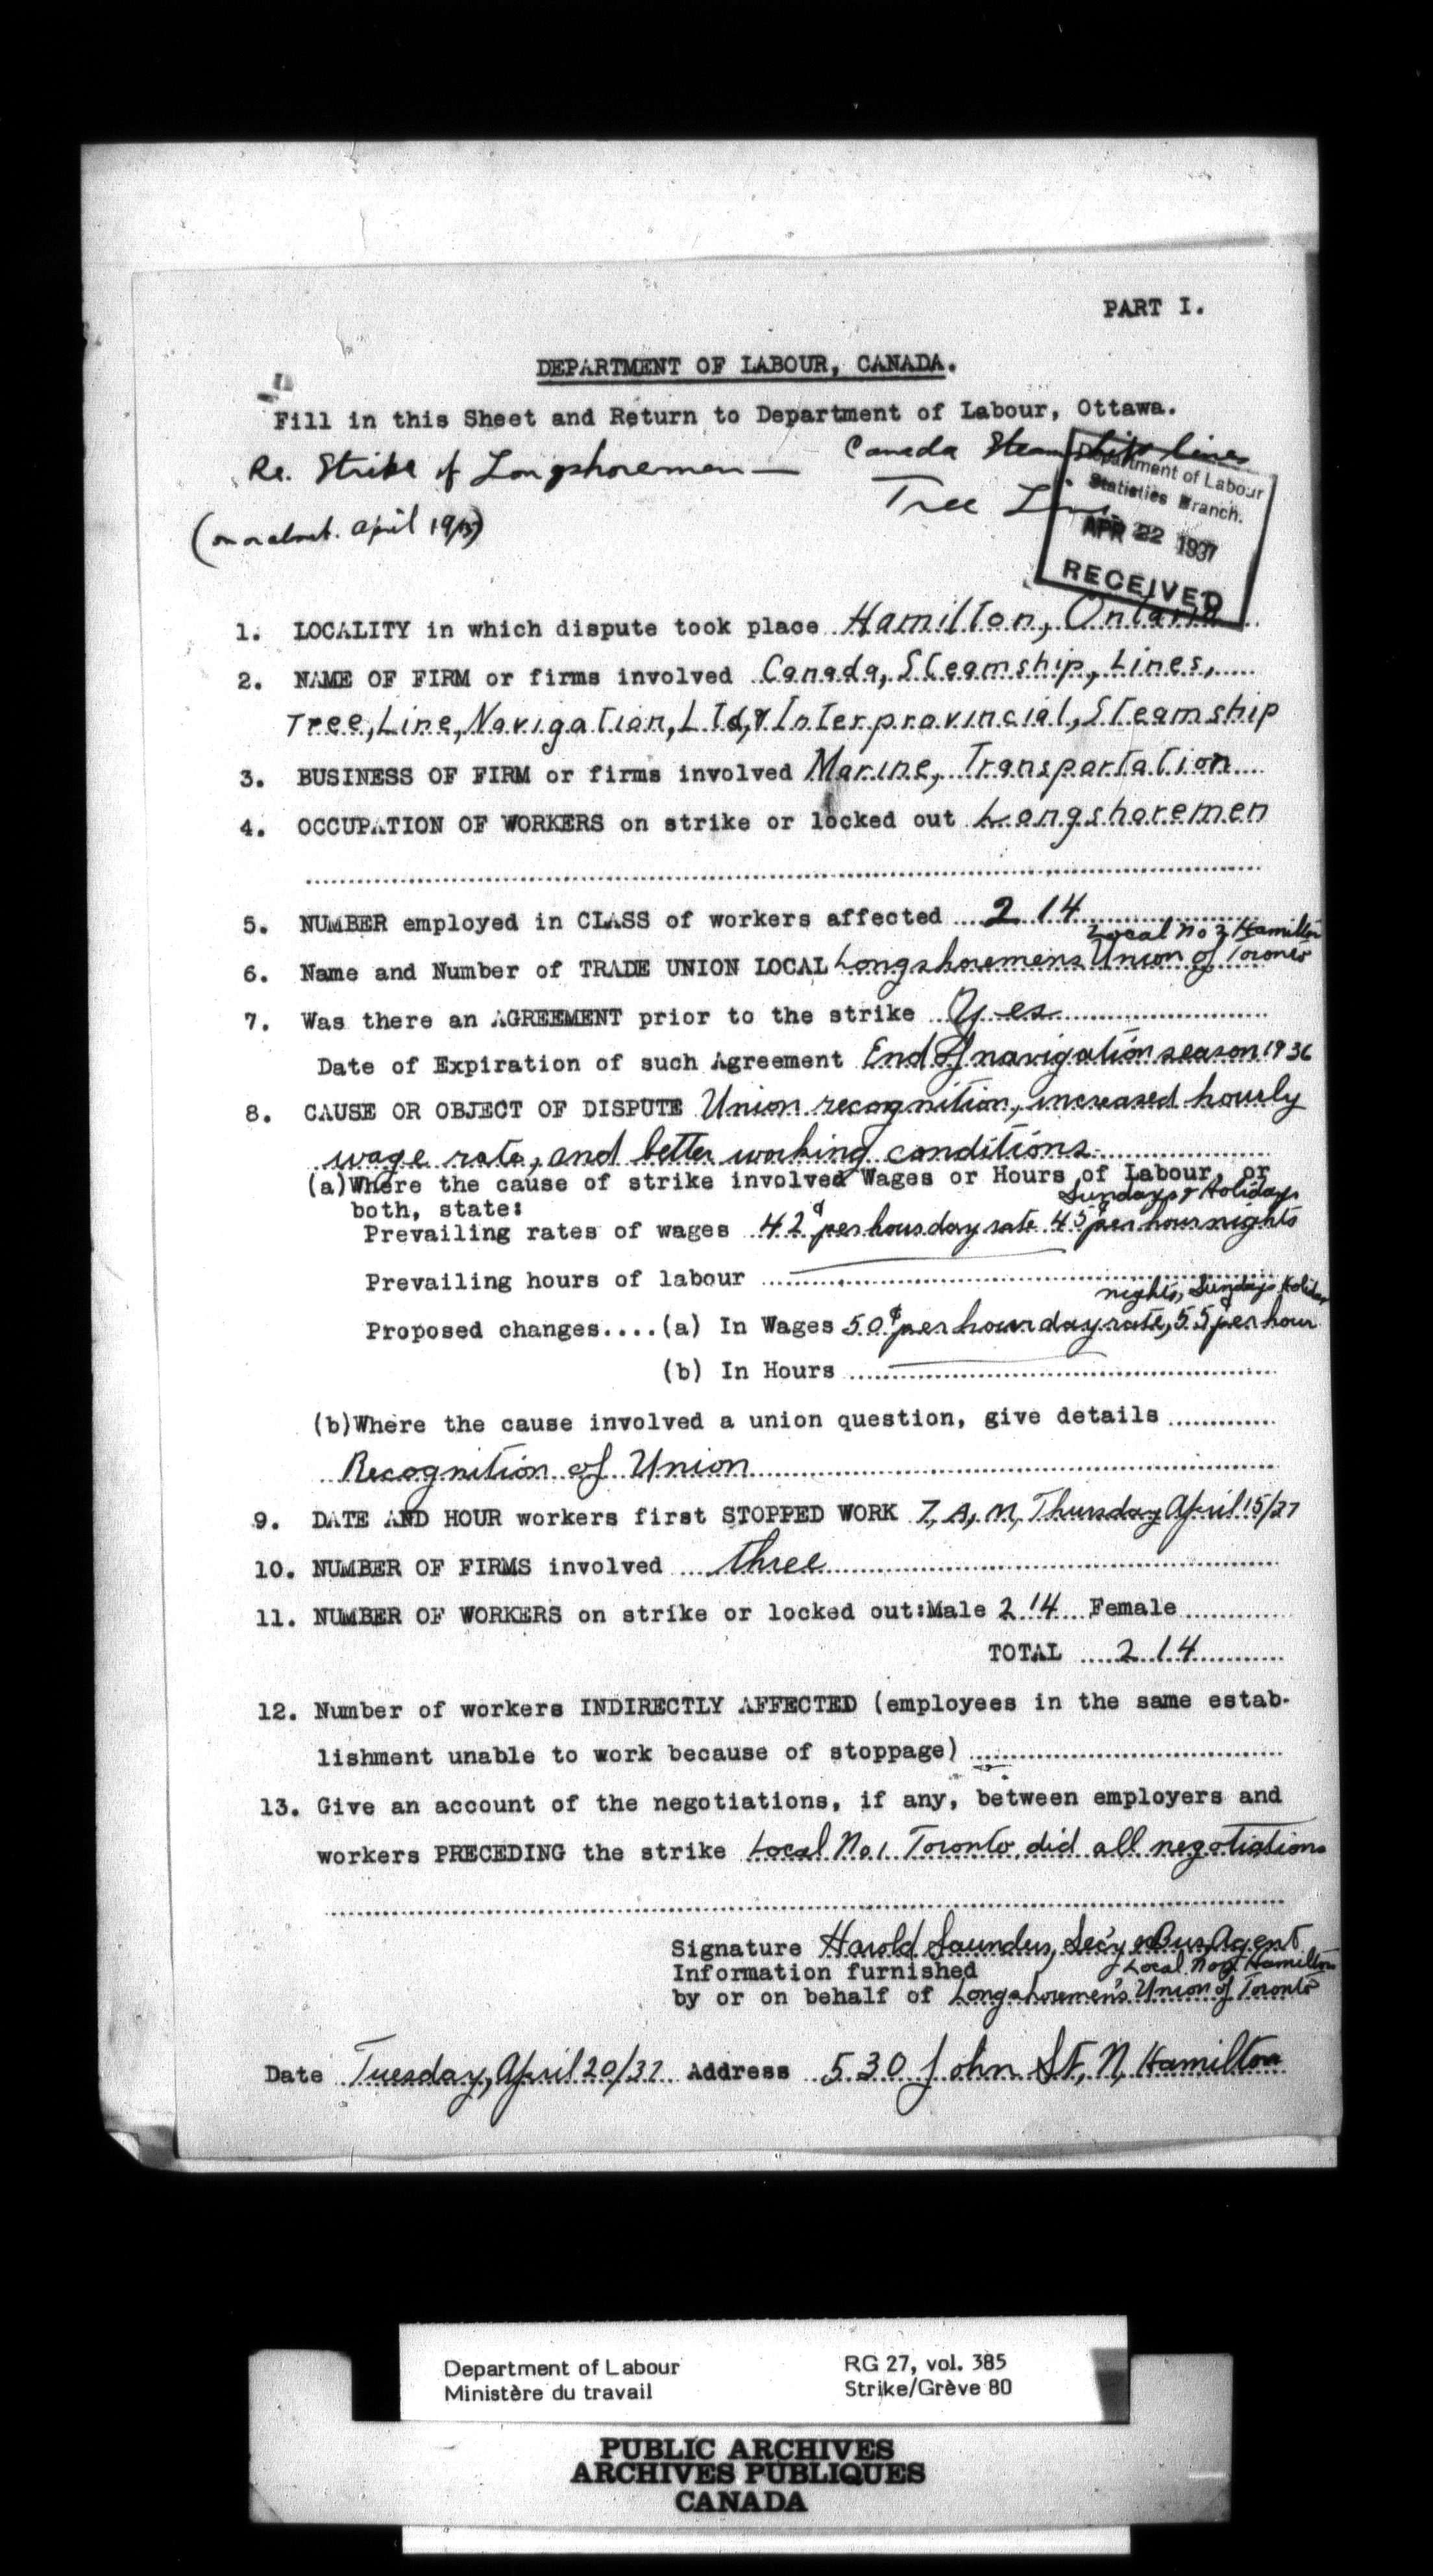 PART I.
DEPARTMENT OF LABOUR, CANADA.
Fill in this Sheet and Return to Department of Labour, Ottawa.
Re. Strike of Longshoremen — Canada Steamship lines
Tree Line
(on or about. April 19/37)
Department of Labour
Statistics Branch.
APR 22 1937
RECEIVED
1. LOCALITY in which dispute took place Hamilton, Ontario
2. NAME OF FIRM or firms involved Canada, Steamship, Lines,
Tree, Line, Navigation, Ltd, & Interprovincial, Steamship
3. BUSINESS OF FIRM or firms involved Marine, Transportation
4. OCCUPATION OF WORKERS on strike or locked out Longshoremen
5. NUMBER employed in CLASS of workers affected 214
Local No 2, Hamilton
6. Name and Number of TRADE UNION LOCAL Longshoremens Union of Toronto
7. Was there an AGREEMENT prior to the strike Yes
Date of Expiration of such Agreement End of navigation season 1936
8. CAUSE OR OBJECT OF DISPUTE Union recognition, increased hourly
wage rate, and better working conditions
(a) Where the cause of strike involved Wages or Hours of Labour, or
both, state:
Sundays & Holidays
Prevailing rates of wages 42¢ per hour day rate 45¢ per hour nights
Prevailing hours of labour
nights, Sundays Holidays
Proposed changes....(a) In Wages 50¢ per hour day rate, 55¢ per hour
(b) In Hours
(b) Where the cause involved a union question, give details
Recognition of Union
9. DATE AND HOUR workers first STOPPED WORK 7, A, M, Thursday April 15/37
10. NUMBER OF FIRMS involved three
11. NUMBER OF WORKERS on strike or locked out: Male 214 Female
TOTAL 214
12. Number of workers INDIRECTLY AFFECTED (employees in the same estab-
lishment unable to work because of stoppage)
13. Give an account of the negotiations, if any, between employers and
workers PRECEDING the strike Local No 1 Toronto did all negotiations
Signature Harold Saunders, Sec'y & Bus Agent
Information furnished Local No 2 Hamilton
by or on behalf of Longshoremen's Union of Toronto
Date Tuesday, April 20/37 Address 530 John St, N, Hamilton
Department of Labour
Ministère du travail
RG 27, vol. 385
Strike/Grève 80
PUBLIC ARCHIVES
ARCHIVES PUBLIQUES
CANADA